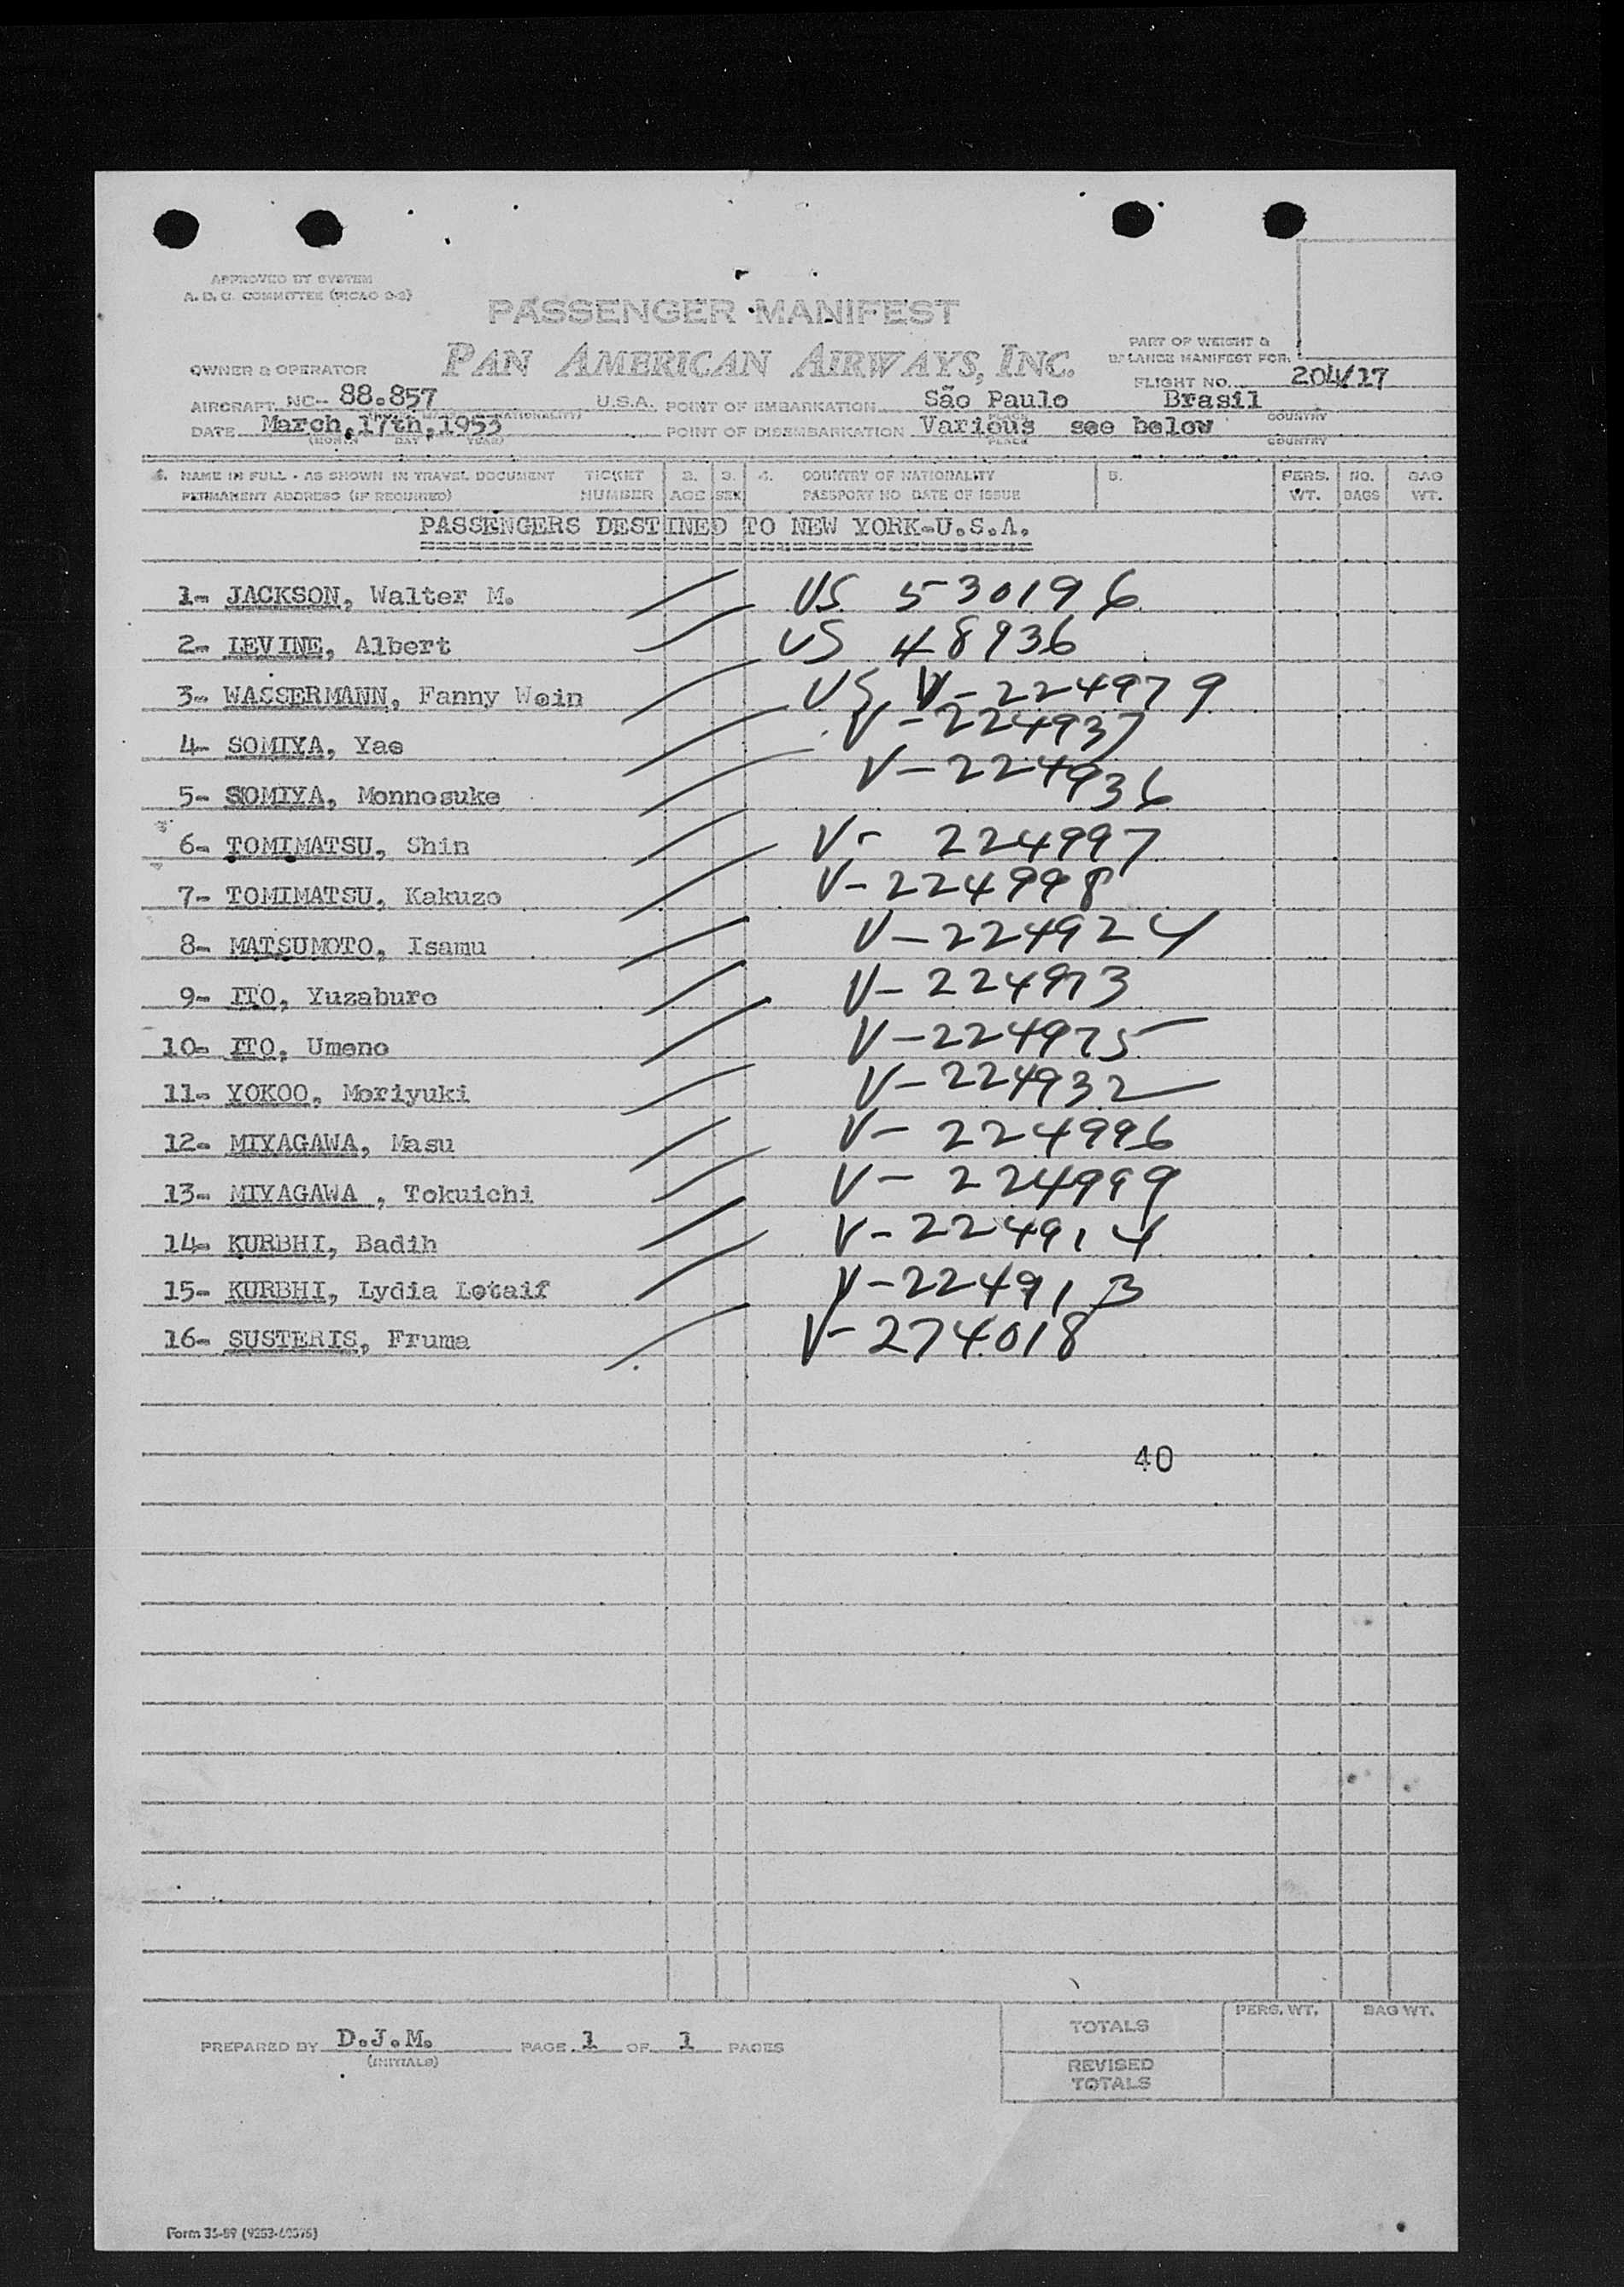 APPROVED BY SYSTEM
A. D. C. COMMITTEE (PICAO 9-2)
PASSENGER MANIFEST
PAN AMERICAN AIRWAYS, INC.
PART OF WEIGHT &
BALANCE MANIFEST FOR:
OWNER & OPERATOR
FLIGHT NO. 204/17
AIRCRAFT NC- 88.857 U.S.A. POINT OF EMBARKATION São Paulo Brasil
PLACE COUNTRY
DATE March, 17th, 1953 POINT OF DISEMBARKATION Various see below
(MONTH DAY YEAR) PLACE COUNTRY
1. NAME IN FULL - AS SHOWN IN TRAVEL DOCUMENT TICKET 2. 3. 4. COUNTRY OF NATIONALITY 5. PERS. NO. BAG
PERMANENT ADDRESS (IF REQUIRED) NUMBER AGE SEX PASSPORT NO DATE OF ISSUE WT. BAGS WT.
PASSENGERS DESTINED TO NEW YORK-U.S.A.
1- JACKSON, Walter M. US 530196
2- LEVINE, Albert US 48936
3- WASSERMANN, Fanny Wein US V-224979
4- SOMIYA, Yae V-224937
5- SOMIYA, Monnosuke V-224936
6- TOMIMATSU, Shin V- 224997
7- TOMIMATSU, Kakuzo V-224998
8- MATSUMOTO, Isamu V-224924
9- ITO, Yuzaburo V-224973
10- ITO, Umeno V-224975
11- YOKOO, Moriyuki V-224932
12- MIYAGAWA, Masu V- 224996
13- MIYAGAWA , Tokuichi V- 224999
14- KURBHI, Badih V-224914
15- KURBHI, Lydia Lotaif V-224913
16- SUSTERIS, Fruma V-274018
40
PERS. WT. BAG WT.
TOTALS
PREPARED BY D.J.M. PAGE 1 OF 1 PAGES
(INITIALS)
REVISED
TOTALS
Form 35-89 (9253-60375)